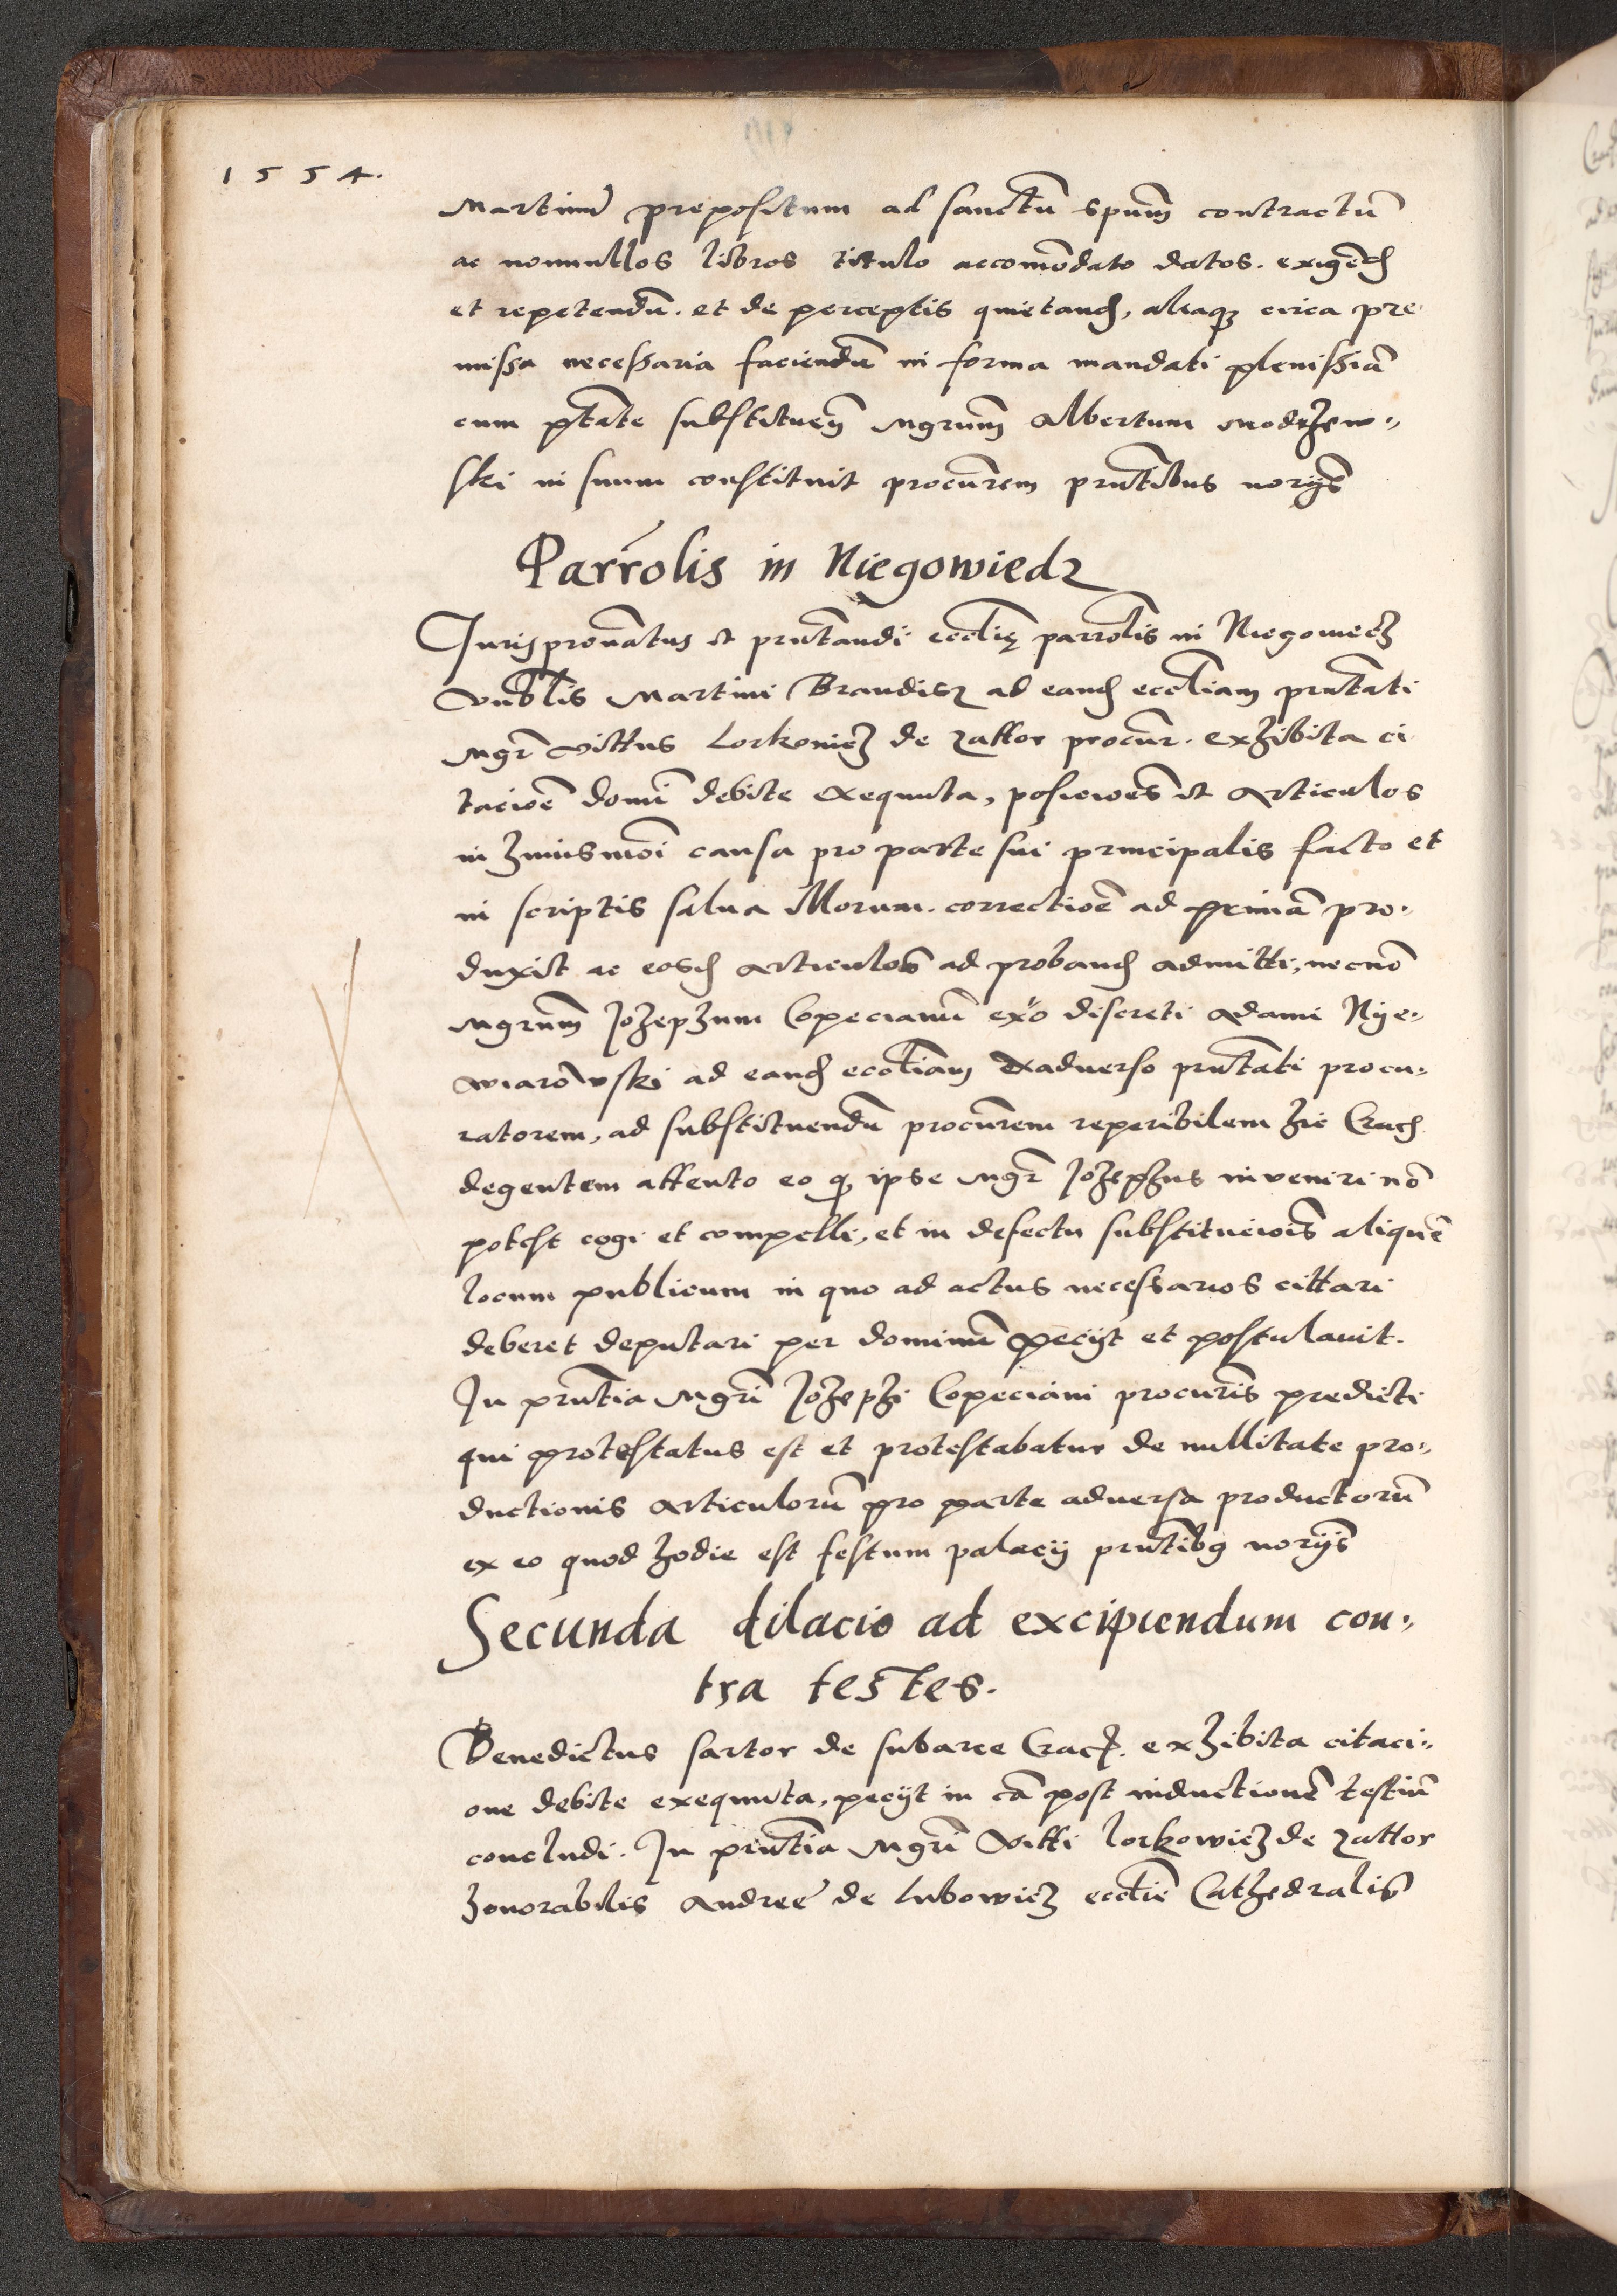 1554.
Martinū prepositum ad sanctū spūm contractū
ac nonnullos libros titulo accomōdato datos. exigēd
et repetendū. et de perceptis quietand, aliaqȝ circa pre
missa necessaria faciendū in forma mandati plenissīa
cum ptāte substituen Mgrūm Albertum Modrzew„
ski in suum constituit procūrem prntībus norijs
Parrōlis in Niegowiedz
Jurispronātus et prntāndi eccliē parrolīs in Niegowiecz
Vnblīs Martini Brandisz ad eand eccliam prntāti
Mgr̄ Vittus Lorkowicz de Zattor procur. exhibita ci
tacioē domī debite exequuta, posicioēs et Articulos
in huiusmōi causa pro parte sui principalis facto et
in scriptis salua Illorum. correctioē ad primā pro„
duxit ac eosd articulos ad proband admitti, necnō
Mgrūm Johephum Copecianū exo discreti Adami Nye„
wiarowski ad eand eccliam exaduerso prntāti procu„
ratorem, ad substituendū procūrem reperibilem hic Crac
degentem attento eo qȝ ipse Mgr̄ Johephus inveniri nō
potest cogi et compelli, et in defectu substitucioīs aliquē
locum publicum in quo ad actus necessarios cittari
deberet deputari per dominū pecijt et postulauit.
In prntīa Mgrī Johephi Copeciani procurīs predicti
qui protestatus est et protestabatur de nullitate pro„
ductionis articulorū pro parte aduersa productorū
ex eo quod hodie est festum palacij prntībȝ norijs
Secunda dilacio ad excipiendum con„
tra testes.
Benedictus sartor de subarce Crac. exhibita citaci„
one debite exequuta, pecijt in cā post inductionē testiū
concludi. In prntīa Mgrī Vitti Lorkowicz de Zattor
honorabilis Andree de Lubowicz eccliē Cathedralis